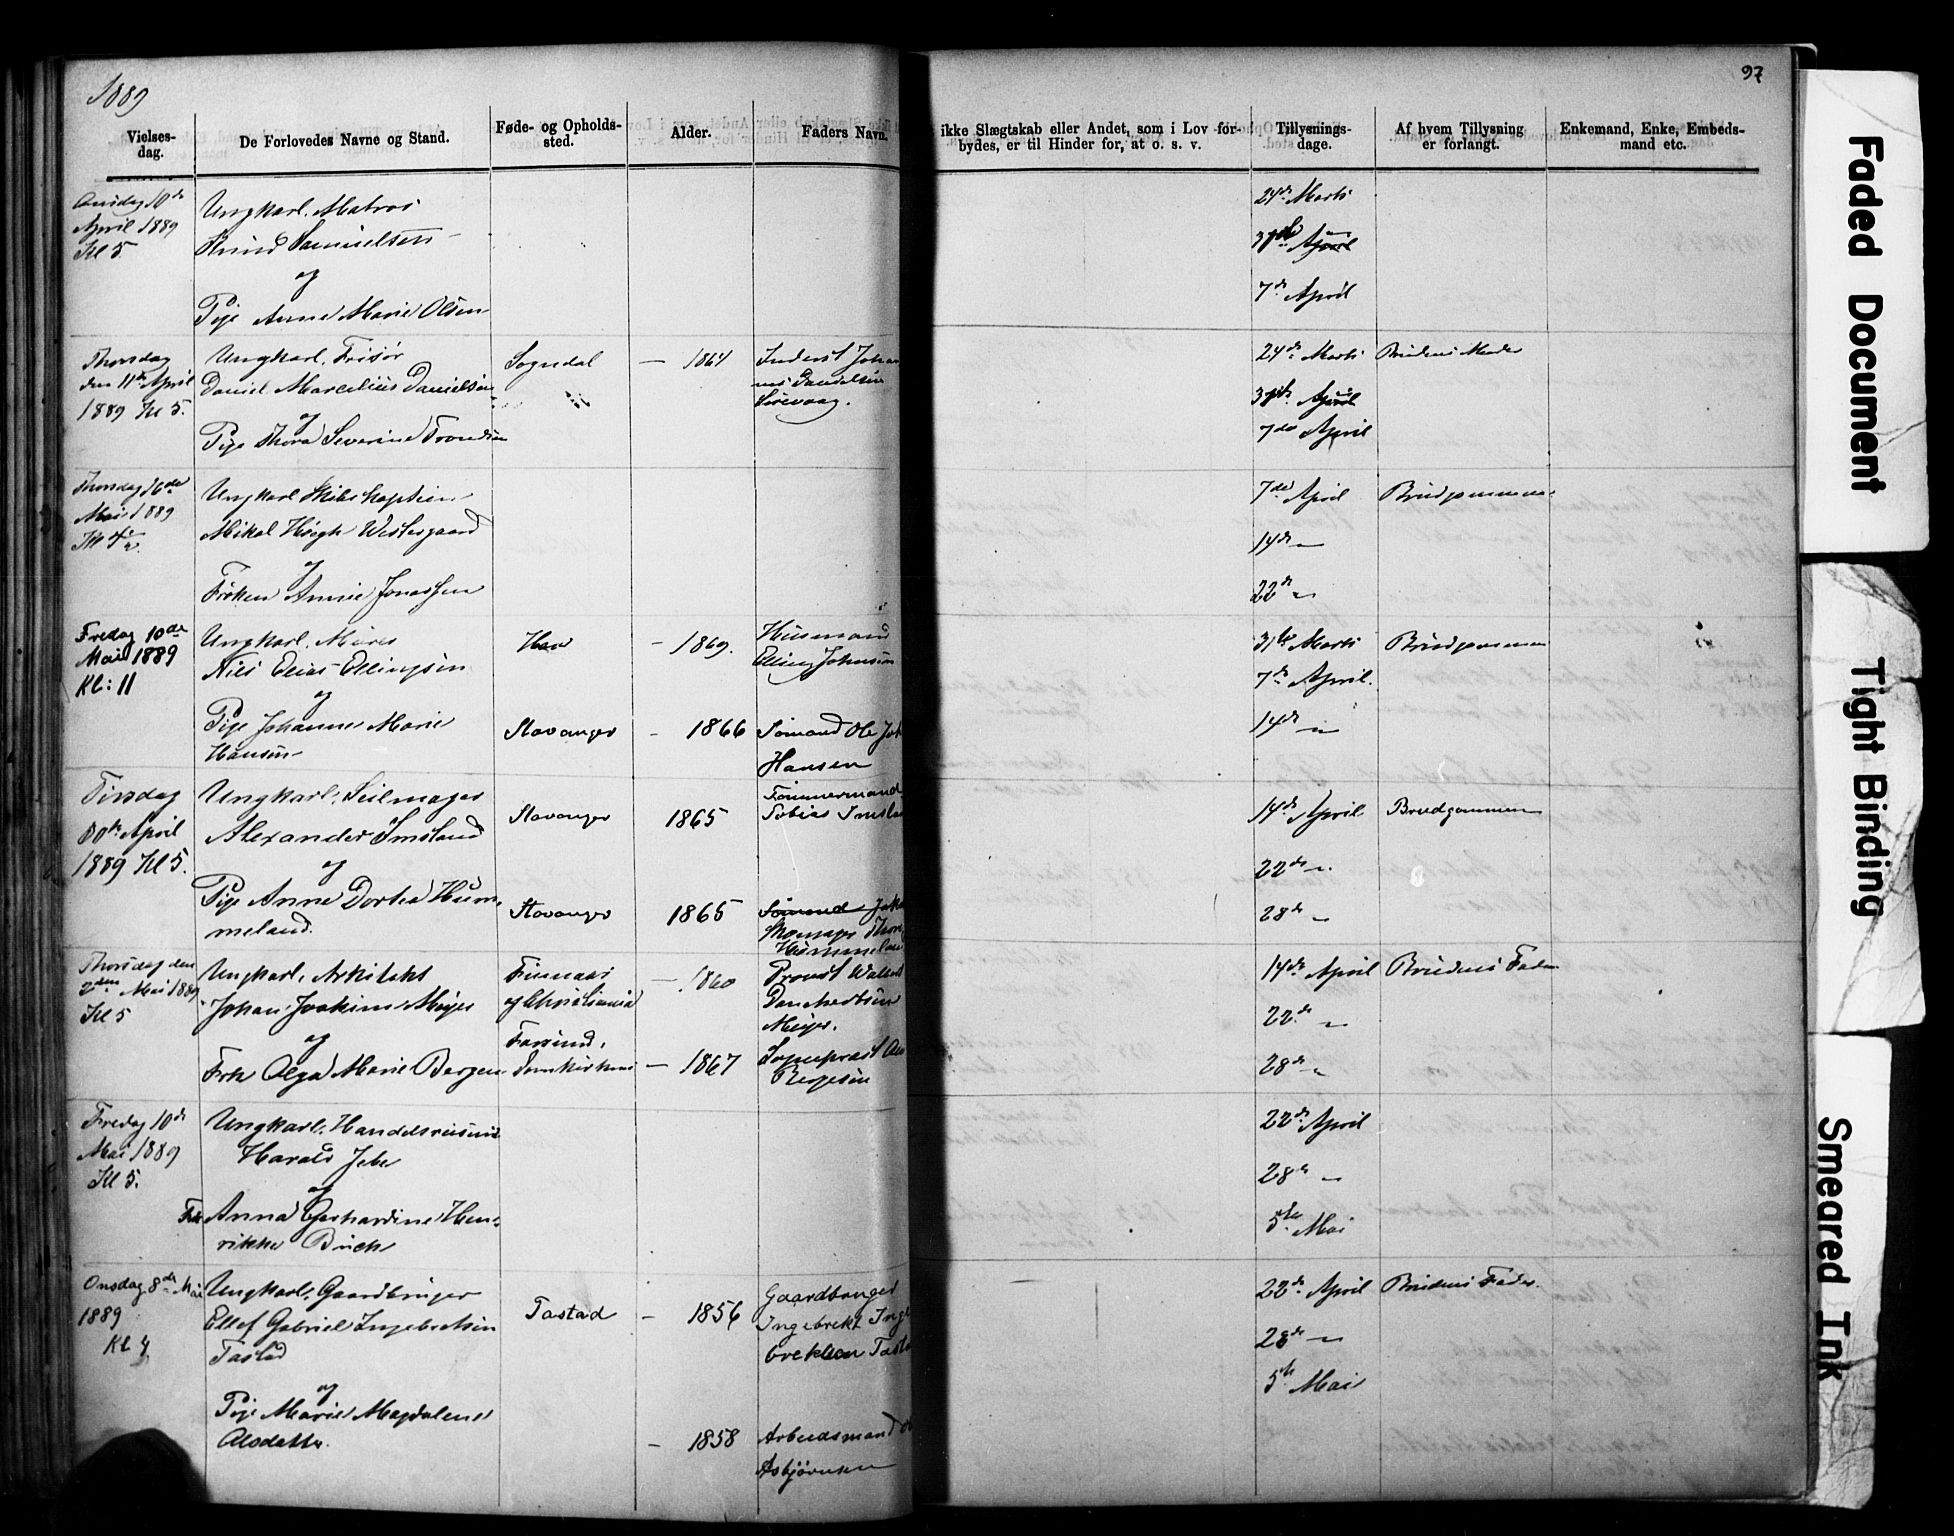 1889
97
Vielses-
dag.
De Forlovedes Navne og Stand.
Føde- og Opholds-
sted.
Alder.
Faders Navn.
ikke Slægtskab eller Andet, som i Lov for-
bydes, er til Hinder for, at o. s. v.
Tillysnings-
dage.
Af hvem Tillysning
er forlangt.
Enkemand, Enke, Embeds-
mand etc.
Onsdag 10de
April 1889
Kl 5.
Ungkarl, Matros
Knud Samuelsen
og
Pige Anne Marie Olsen
24de Marts
31te
7de April
Thorsdag
den 11te April
1889 Kl 5.
Ungkarl, Frisør
Daniel Marcelius Danielsen
og
Pige Thora Severine
Sogndal
– 1864
Danielsen
Sirevaag.
24de Marts
31te
7de April
Brudens Moder
Thorsdag 16de
Mai 1889
Ungkarl Skibskaptein
Mikal Høegh Westergaard
og
Frøken Annie Jonassen
7de April
14de "
22de "
Brudgommen
Fredag 10de
Mai 1889
Kl: 11
Ungkarl, Murer
Nils Elias Ellingsen
og
Pige Johanne Marie
Hansen
– 1869.
Husmand
Elling Johnsen
Stavanger
– 1866
Sømand Ole
Hansen
31te Marts
7de April.
14de "
Brudgommen
Tirsdag
April
1889 Kl 5.
Ungkarl, Seilmager
Alexander Imsland
og
Pige Anne Dortea Hum-
meland.
Stavanger
1865
Tømmermand
Tobias Imsland
Stavanger
1865
Sømand
Skomager
Hummeland
14de April
22de "
28de "
Brudgommen
Thorsdag den
2den Mai 1889
Kl 5
Ungkarl, Arkitekt
Johan Joakim Meyer
og
Frk Olga Marie Bergesen
og Christiania
Farsund,
Domkirken
– 1860
Provst
Meyer.
– 1867
Sogneprest
Bergesen
14de April
22de "
28de "
Brudens Fader
Fredag 10de
Mai 1889
Kl 5.
Ungkarl, Handelsreisende
Harald
og
Frk Anna Gerhardine Hen-
rikke
22de April
28de "
5te Mai
Onsdag 8de Mai
1889
Kl 4
Ungkarl, Gaardbruger
Ellef Gabriel Ingebretsen
Tastad
og
Pige Marie Magdalene
Olsdatter.
Tastad
– 1856
Gaardbruger
Ingebrekt
– 1858
Arbeidsmand
Asbjørnsen
22de April
28de "
5te Mai
Brudens Fader.
Faded Document
Tight Binding
Smeared Ink